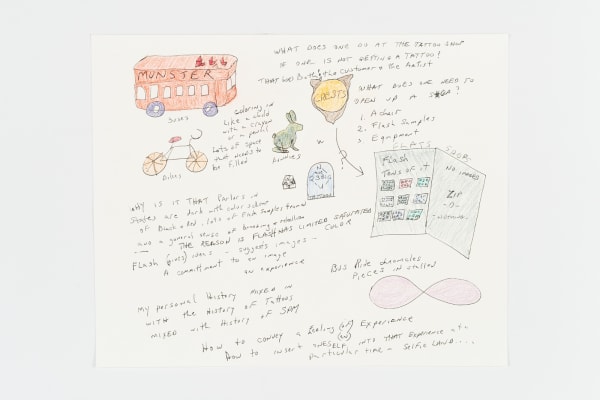 WHAT DOES ONE DO AT THE TATTOO SHOP
IF ONE IS NOT GETTING A TATTOO!
THAT goes Both the Customer & the Artist
MUNSTER
buses
COLORING IN
like a child
with a crayon
or a pencil
Lots of space
that needs to
be filled
bikes
bunnies
GHOSTS
WHAT DOES ONE NEED TO
OPEN UP A SHOP?
1. A chest
2. Flash Samples
3. Equipment
Flash
Tons of it
NO INNARDS
ZIP
-0-
WHY IS IT THAT Parlors in
States are dark with color scheme
of Black & Red, lots of Flash Samples
and a general sense of brooding & rebellion
THE REASON IS FLASH HAS LIMITED
COLOR
Flash gives ideas - suggests images -
A commitment to an image
an experience
Bus Ride chronicles
PIECES installed
My personal History MIXED IN
WITH the History of Tattoos
MIXED with History of
HOW TO convey a Feeling (or) Experience
(or)
How to insert ONESELF INTO THAT Experience at a
particular time - Selfie LAND....